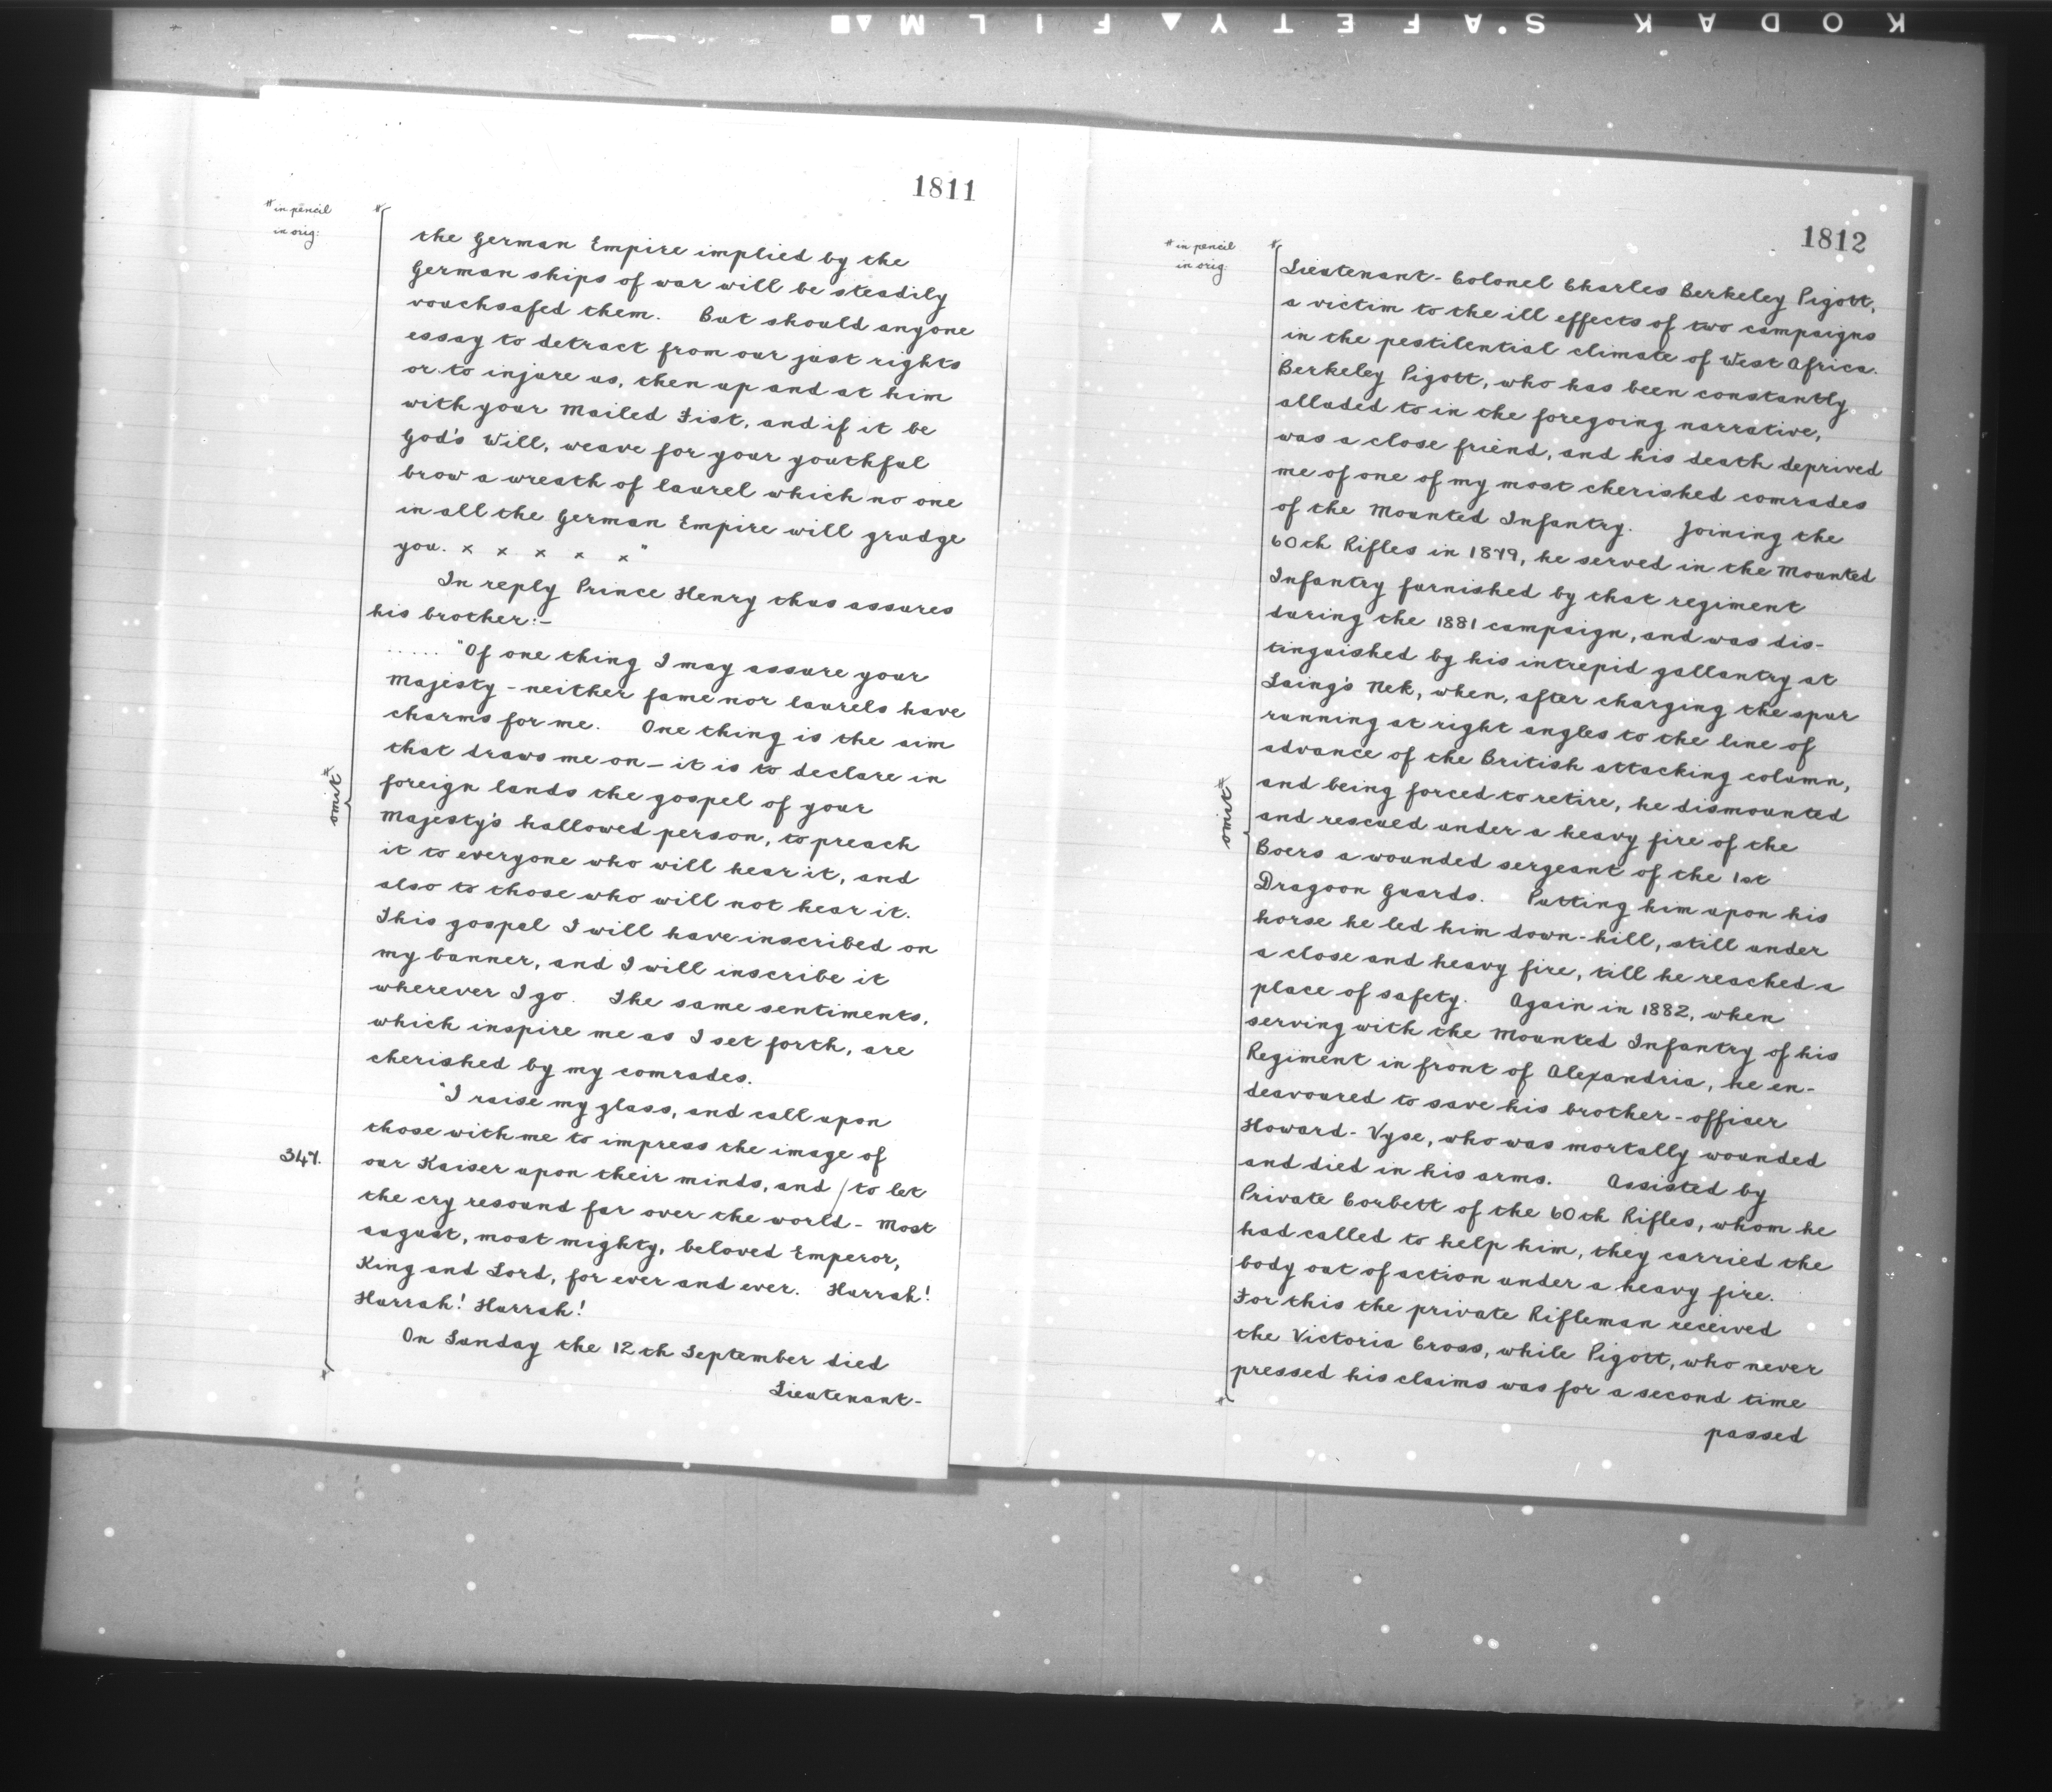 KODAK S.AFETY▲FILM▲■
1811
# in pencil
in orig:
#
the German Empire implied by the
German ships of war will be steadily
vouchsafed them. But should anyone
essay to detract from our just rights
or to injure us, then up and at him
with your Mailed Fist, and if it be
God's Will, weave for your youthful
brow a wreath of laurel which no one
in all the German Empire will grudge
you. x x x x x"
In reply Prince Henry thus assures
his brother:-
..... "Of one thing I may assure your
Majesty - neither fame nor laurels have
charms for me. One thing is the aim
that draws me on - it is to declare in
foreign lands the gospel of your
Majesty's hallowed person, to preach
it to everyone who will hear it, and
also to those who will not hear it.
This gospel I will have inscribed on
my banner, and I will inscribe it
wherever I go. The same sentiments,
which inspire me as I set forth, are
cherished by my comrades.
"I raise my glass, and call upon
those with me to impress the image of
our Kaiser upon their minds, and / to let
the cry resound far over the world - Most
august, most mighty, beloved Emperor,
King and Lord, for ever and ever. Hurrah!
Hurrah! Hurrah!
On Sunday the 12th September died
Lieutenant-
omit #
347.
#
1812
# in pencil
in orig:
#
Lieutenant-Colonel Charles Berkeley Pigott,
a victim to the ill effects of two campaigns
in the pestilential climate of West Africa.
Berkeley Pigott, who has been constantly
alluded to in the foregoing narrative,
was a close friend, and his death deprived
me of one of my most cherished comrades
of the Mounted Infantry. Joining the
60th Rifles in 1879, he served in the Mounted
Infantry furnished by that regiment
during the 1881 campaign, and was dis-
tinguished by his intrepid gallantry at
Laing's Nek, when, after charging the spur
running at right angles to the line of
advance of the British attacking column,
and being forced to retire, he dismounted
and rescued under a heavy fire of the
Boers a wounded sergeant of the 1st
Dragoon Guards. Putting him upon his
horse he led him down-hill, still under
a close and heavy fire, till he reached a
place of safety. Again in 1882, when
serving with the Mounted Infantry of his
Regiment in front of Alexandria, he en-
deavoured to save his brother-officer
Howard-Vyse, who was mortally wounded
and died in his arms. Assisted by
Private Corbett of the 60th Rifles, whom he
had called to help him, they carried the
body out of action under a heavy fire.
For this the private Rifleman received
the Victoria Cross, while Pigott, who never
pressed his claims was for a second time
passed
omit #
#